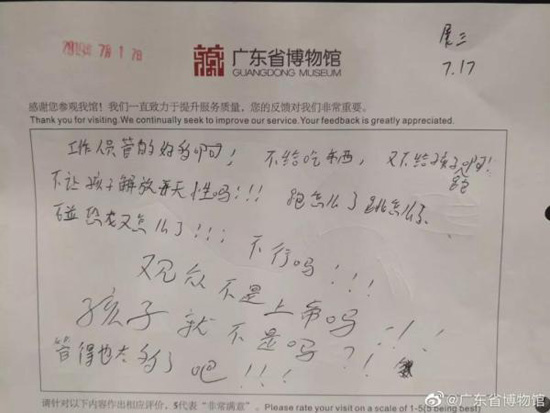 展三
7.17
广东省博物馆
GUANGDONG MUSEUM
感谢您参观我馆！我们一直致力于提升服务质量，您的反馈对我们非常重要。
Thank you for visiting. We continually seek to improve our service. Your feedback is greatly appreciated.
工作人员管的好多啊！不给吃东西，又不给孩子跑啊！
不让孩子解放天性吗！！！跑怎么了跳怎么了
碰恐龙又怎么了！！！
不行吗！！！
观众不是上帝吗！！！
孩子就不是吗？！！
管得也太多了吧！！！
请针对以下内容作出相应评价，5代表“非常满意”。 Please rate your visit on a scale of 1-5(5 being best)
@广东省博物馆